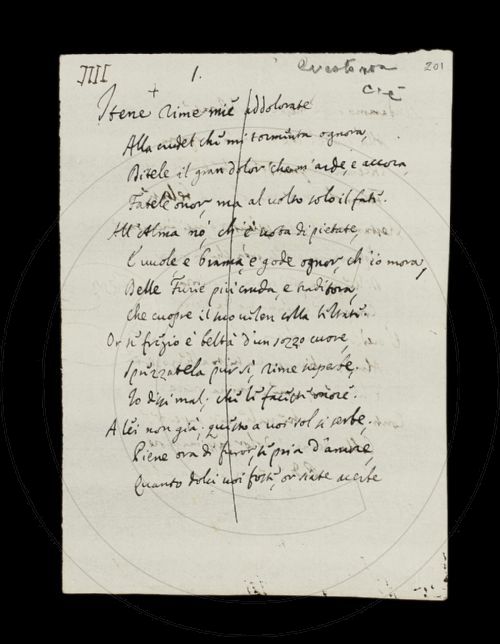 IIII 1. Questo non 201
c'è
Itene Rime mie addolorate
Alla crudel chi mi tormenta ognora,
Ditele il gran dolor che m'arde, e accora
Fatele onor, ma al volto solo il fate.
All'Alma no chi è vota di pietate,
E vuole e brama, e gode ognor ch'io mora,
Delle Furie più cruda, e traditora,
che cuopre il suo velen colla
Or su fregio è beltà d'un sozzo cuore,
Spuzzatela pur sì, rime superbe.
Io dissi mal; chi le facesti onore.
A lei non già; questo a voi sol si serbe,
Piene ora di furor, su pria d'amore,
Quanto dolci voi foste, or siate acerbe